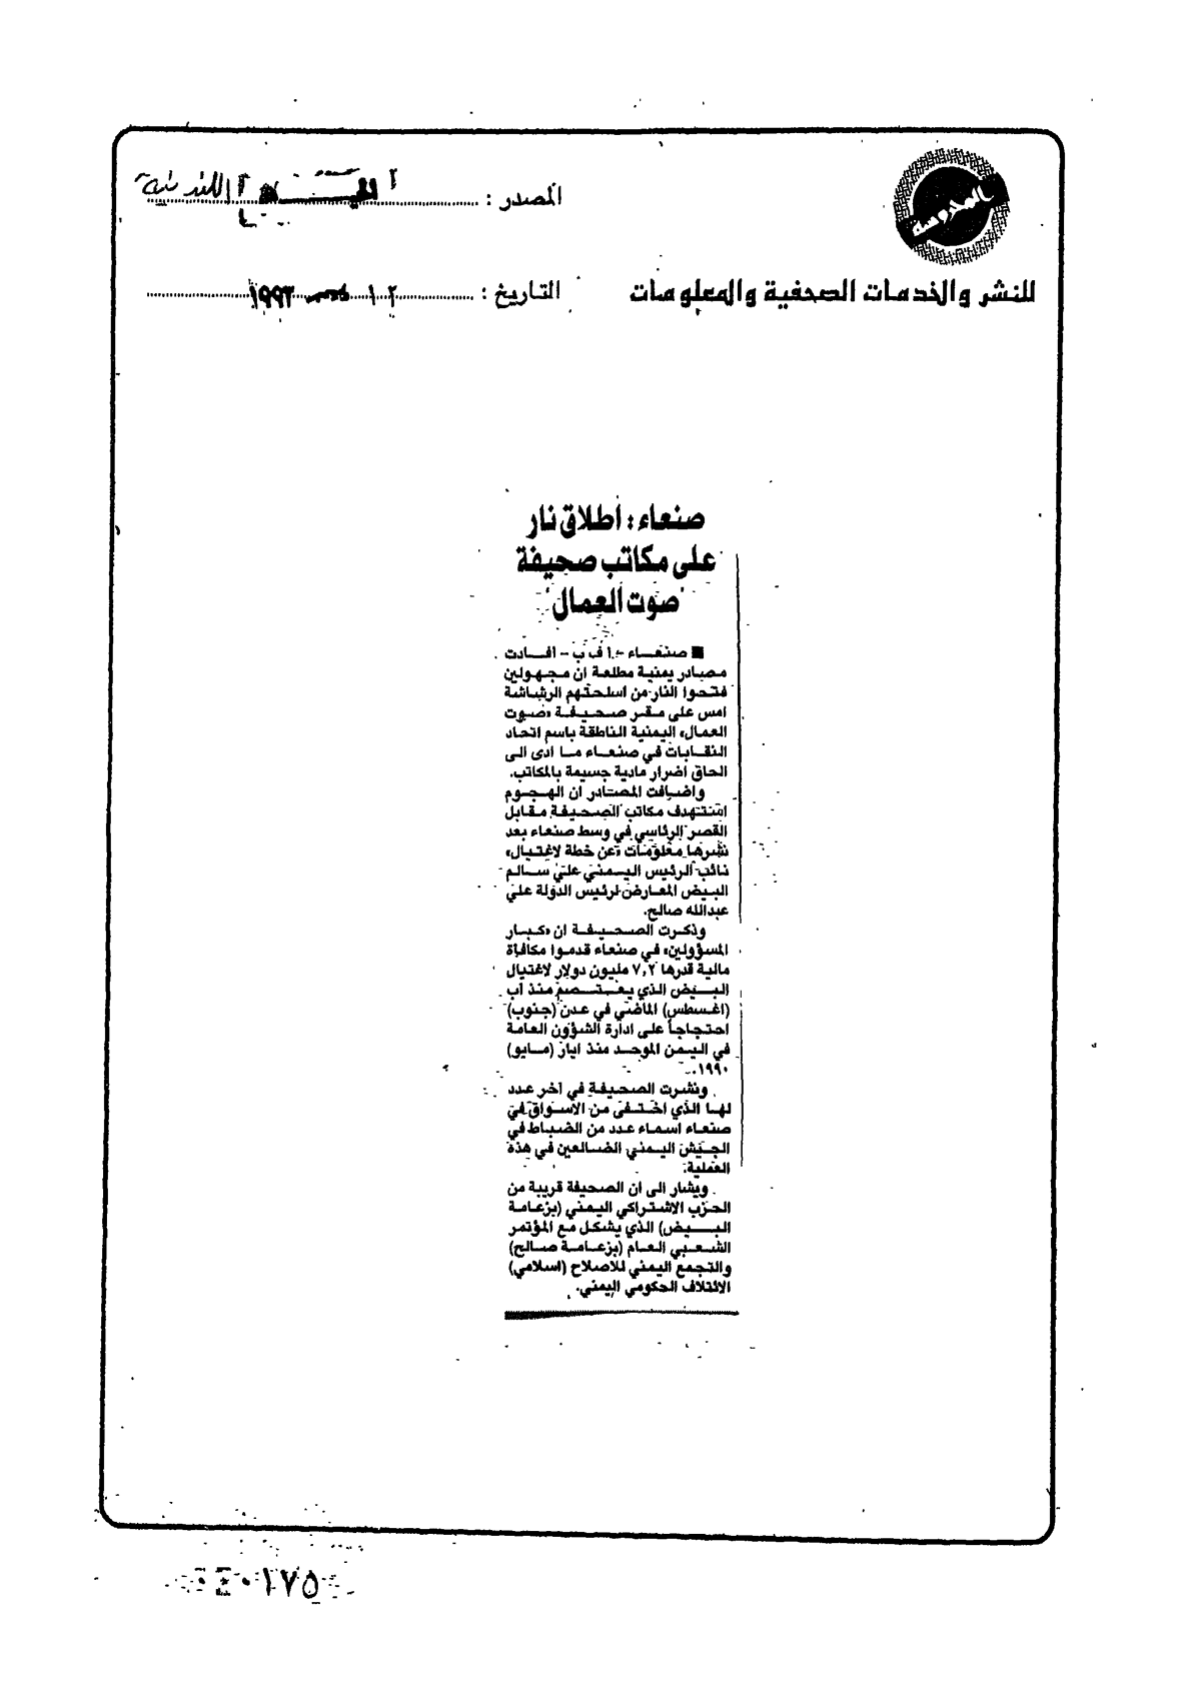 المحروسة
المصدر : الحياة اللندنية
للنشر والخدمات الصحفية والمعلومات
التاريخ : ١٩٩٣
صنعاء : اطلاق نار
على مكاتب صحيفة
"صوت العمال"
■ صنعاء - ا ف ب - افادت
مصادر يمنية مطلعة ان مجهولين
فتحوا النار من اسلحتهم الرشاشة
امس على مقر صحيفة «صوت
العمال» اليمنية الناطقة باسم اتحاد
النقابات في صنعاء ما ادى الى
الحاق اضرار مادية جسيمة بالمكاتب.
واضافت المصادر ان الهجوم
استهدف مكاتب الصحيفة مقابل
القصر الرئاسي في وسط صنعاء بعد
نشرها معلومات «عن خطة لاغتيال»
نائب الرئيس اليمني علي سالم
البيض المعارض لرئيس الدولة علي
عبدالله صالح.
وذكرت الصحيفة ان «كبار
المسؤولين» في صنعاء قدموا مكافأة
مالية قدرها ٧,٢ مليون دولار لاغتيال
البيض الذي يعتصم منذ آب
(اغسطس) الماضي في عدن (جنوب)
احتجاجاً على ادارة الشؤون العامة
في اليمن الموحد منذ ايار (مايو)
١٩٩٠.
ونشرت الصحيفة في آخر عدد
لها الذي اختفى من الأسواق في
صنعاء اسماء عدد من الضباط في
الجيش اليمني الضالعين في هذه
العملية.
ويشار الى ان الصحيفة قريبة من
الحزب الاشتراكي اليمني (بزعامة
البيض) الذي يشكل مع المؤتمر
الشعبي العام (بزعامة صالح)
والتجمع اليمني للاصلاح (اسلامي)
الائتلاف الحكومي اليمني.